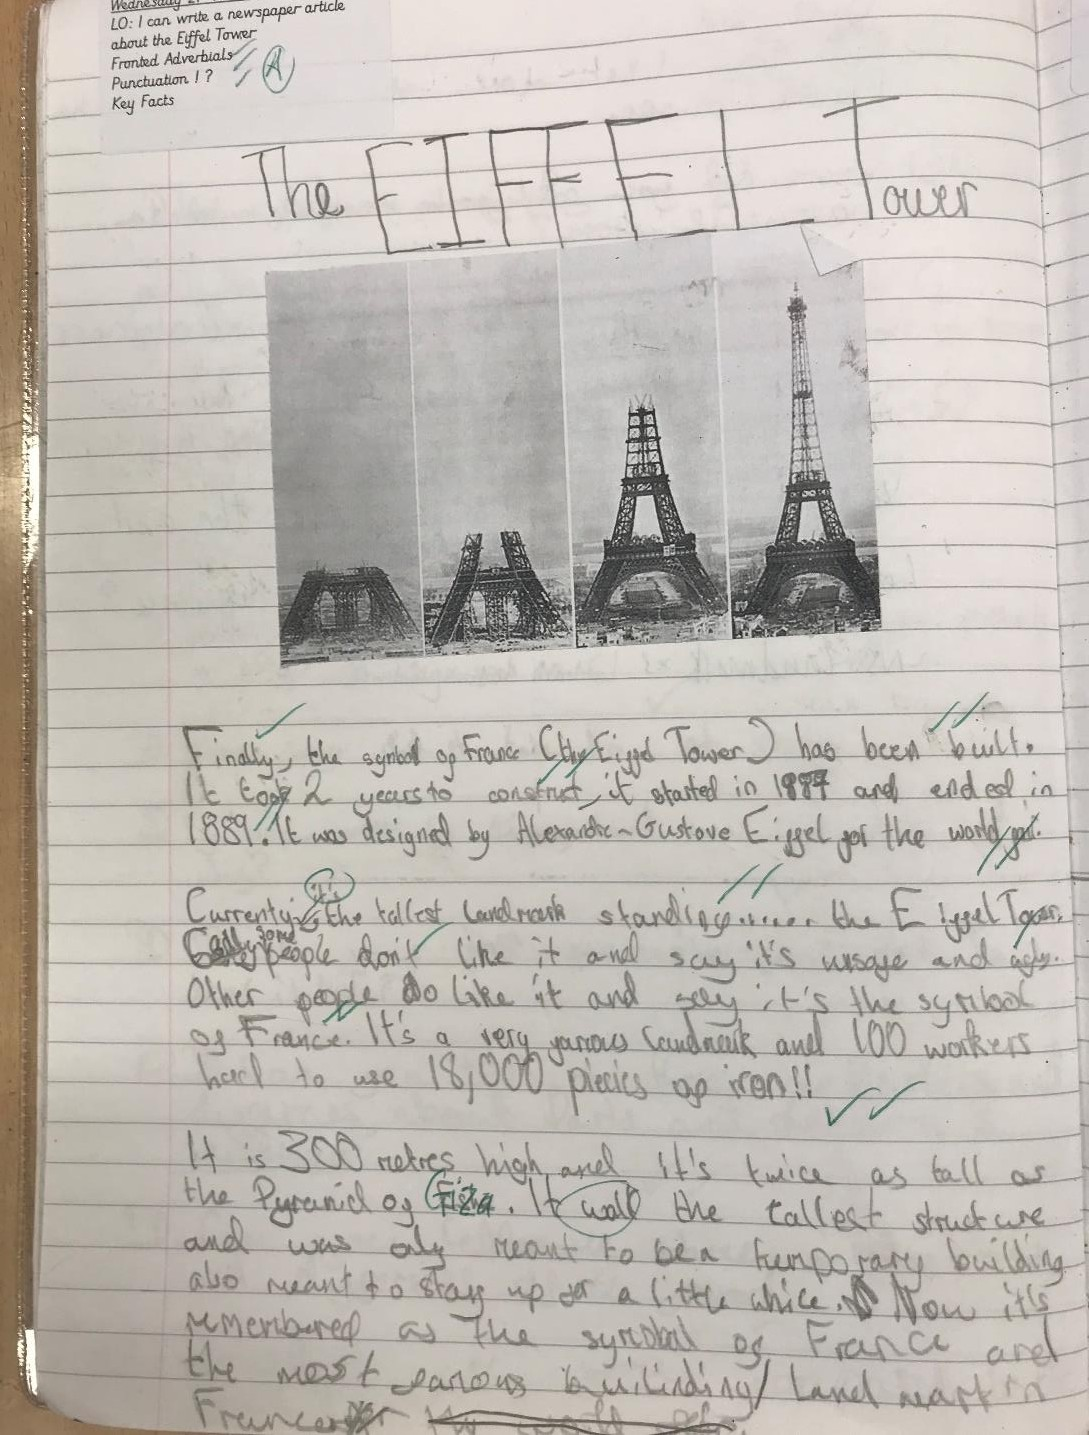 LO: I can write a newspaper article
about the Eiffel Tower
Fronted Adverbials
Punctuation ! ?
Key Facts
A
The EIFFEL Tower
Finally, the symbol of France (the Eiffel Tower) has been built.
It took 2 years to construct, it started in 1887 and ended in
1889. It was designed by Alexandre-Gustave Eiffel for the world
it's
Currenty the tallest landmark standing...... the Eiffel Tower.
some people don't like it and say it's and
Other people do like it and say it's the symbol
of France. It's a very famous landmark and 100 workers
had to use 18,000 piecies of iron!!
It is 300 metres high and it's twice as tall as
the Pyramid of Giza. It wall the tallest structure
and was only meant to be a temporary building
also meant to stay up for a little while. Now it's
remembered as the symbol of France and
the most famous builinding/landmark in
France